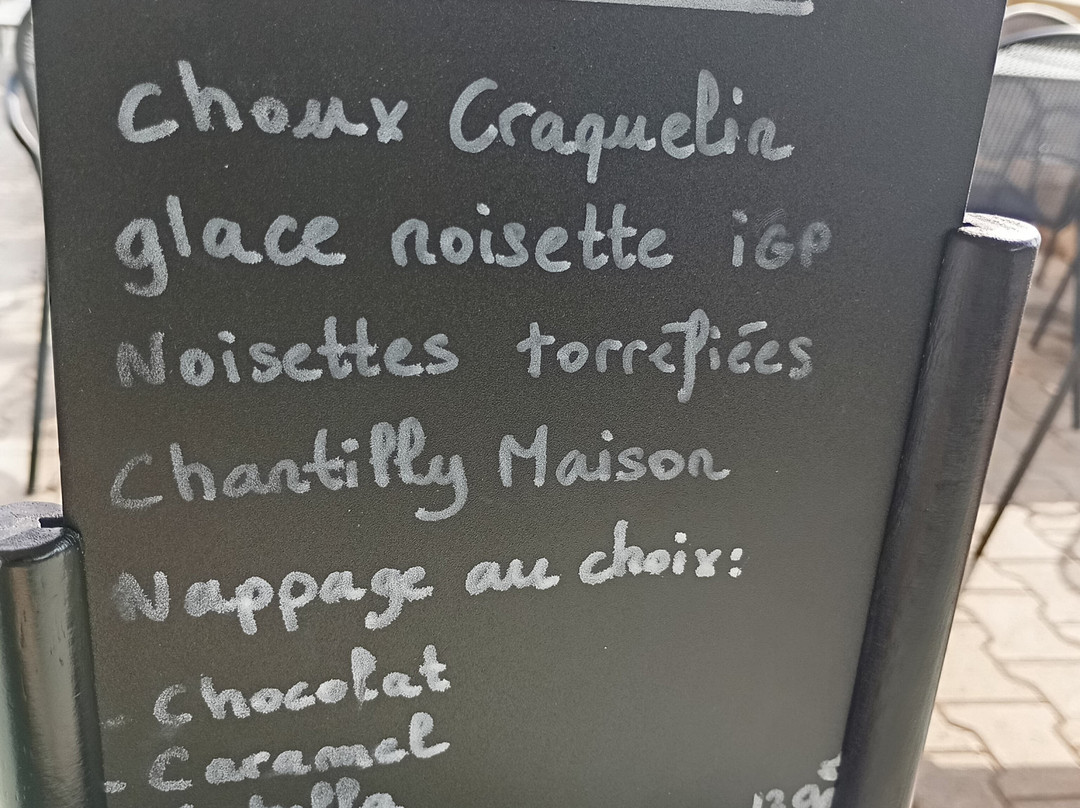 Choux Craquelin
glace noisette iGP
Noisettes torréfiées
Chantilly Maison
Nappage au choix:
- Chocolat
- Caramel